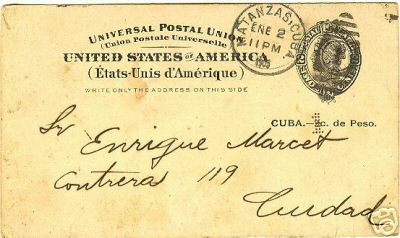 UNIVERSAL POSTAL UNION
(Union Postale Universelle)
UNITED STATES OF AMERICA
(États-Unis d'Amérique)
WRITE ONLY THE ADDRESS ON THIS SIDE
MATANZAS, CUBA
ENE 2
11 PM
CUBA.—2c. de Peso.
Sr Enrique Marcet
Contreras 119
Ciudad